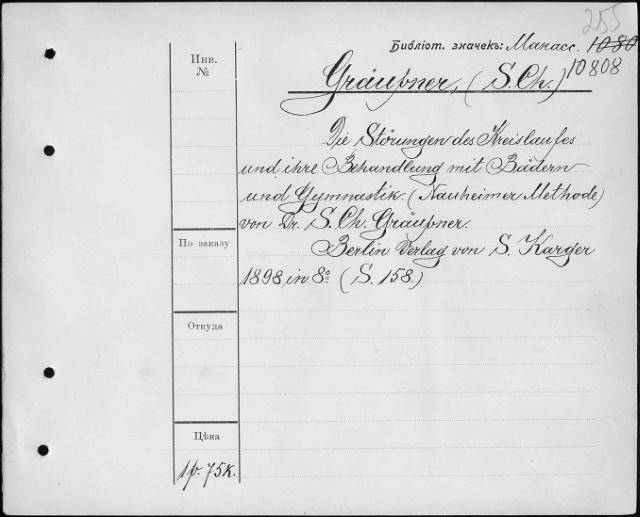 255
Библіот. значекъ: Манасс. 1080
10808
Инв.
№
Gräupner, (S. Ch.)
Die Störungen des Kreislaufes
und ihre Behandlung mit Bädern
und Gymnastik. (Nauheimer Methode)
von Dr. S. Ch. Gräupner.
Berlin Verlag von S. Karger
1898, in 8º. (S. 158.)
По заказу
Откуда
Цѣна
1 р. 75 к.